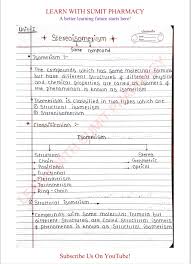 LEARN WITH SUMIT PHARMACY
A better learning future starts here!
Unit-1
Stereoisomerism
Isomerism :-
The compounds which has same molecular formula
but have different structures & different physical
and chemical properties are called as Isomers
and phenomena is known as Isomerism.
Isomerism is classified in two types which are
1) Structural Isomerism
2) Stereo Isomerism
Classification :-
Isomerism
Structural
Stereo
Chain
Geometric
Position
Optical
Functional
Metamerism
Tautomerism
Ring - Chain
Structural Isomerism :-
Compounds with Same molecular formula but
different Structures are called Structural Isomers &
phenomenon is known as Structural Isomerism.
LEARN WITH SUMIT PHARMACY
Subscribe Us On YouTube!